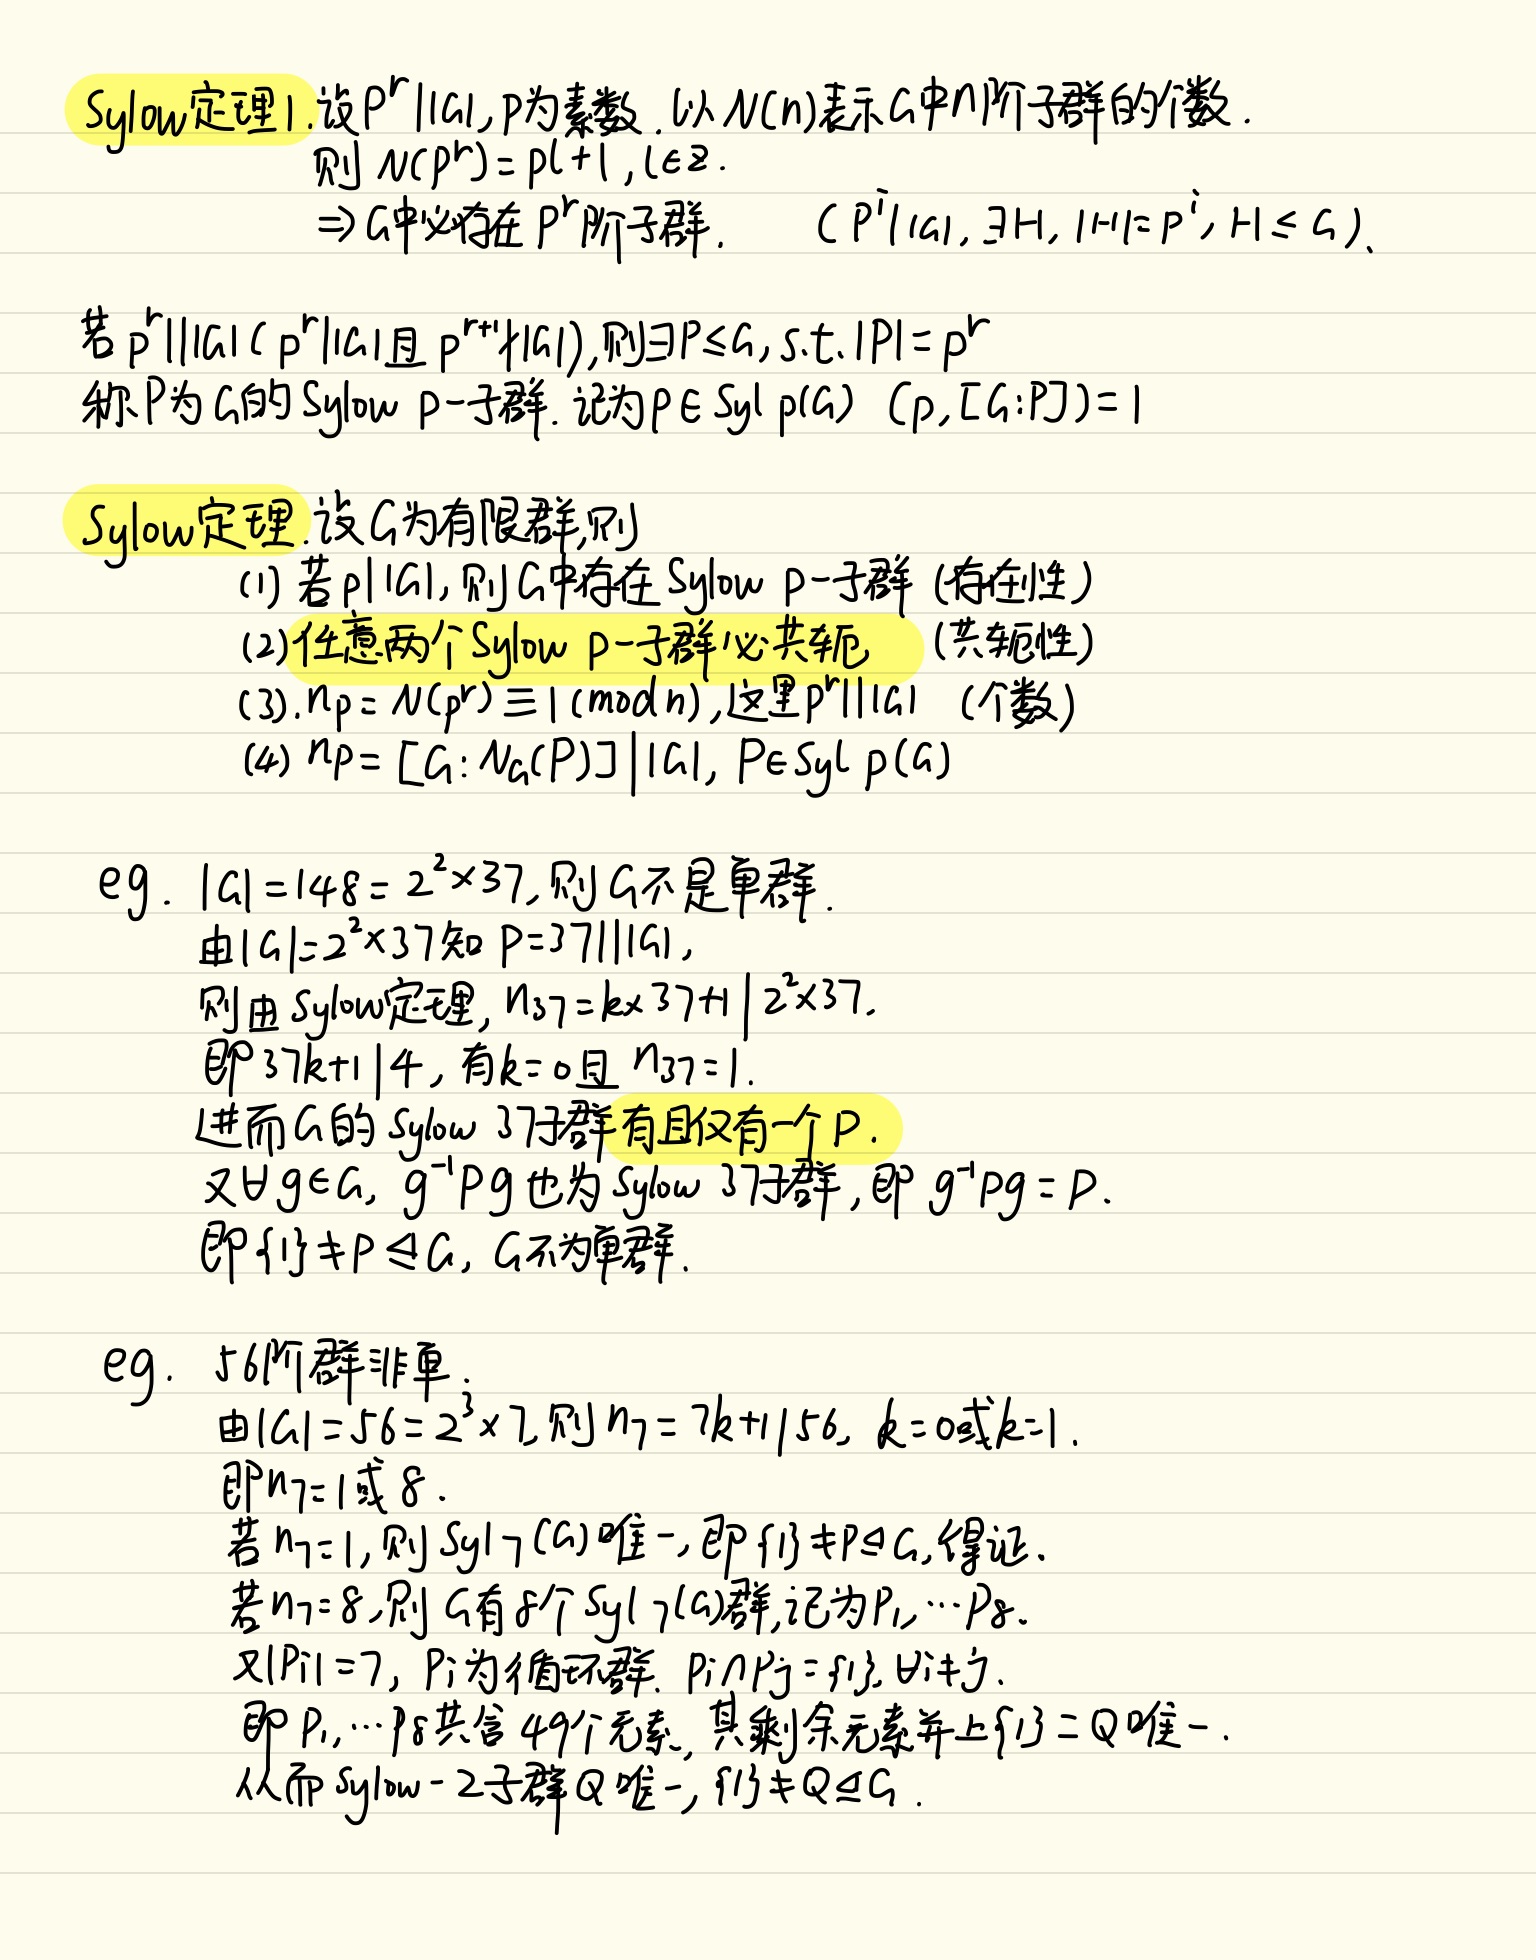 Sylow定理1.设 p^r | |G|, p为素数.以N(n)表示G中n阶子群的个数.
则 N(p^r)=pl+1, l∈Z.
⇒G中必存在 p^r 阶子群. (p^i | |G|, ∃H, |H|=p^i, H≤G).
若 p^r || |G| (p^r | |G| 且 p^{r+1} ∤ |G|),则∃P≤G, s.t. |P|=p^r
称P为G的Sylow p-子群.记为P∈Syl p(G) (p,[G:P])=1
Sylow定理.设G为有限群,则
(1) 若p | |G|, 则G中存在Sylow p-子群 (存在性)
(2)任意两个Sylow p-子群必共轭 (共轭性)
(3). n_p=N(p^r)≡1(mod n),这里p^r || |G| (个数)
(4) n_p=[G:N_G(P)] | |G|, P∈Syl p(G)
eg. |G|=148=2²×37,则G不是单群.
由|G|=2²×37知 p=37 || |G|,
则由Sylow定理, n_37=k×37+1 | 2²×37.
即37k+1 | 4, 有k=0且 n_37=1.
进而G的Sylow 37子群有且仅有一个P.
又∀g∈G, g⁻¹Pg也为Sylow 37子群,即 g⁻¹Pg=P.
即{1}≠P⊲G, G不为单群.
eg. 56阶群非单.
由|G|=56=2³×7,则n_7=7k+1 | 56, k=0或k=1.
即n_7=1或8.
若n_7=1,则Syl_7(G)唯一,即{1}≠P⊴G,得证.
若n_7=8,则G有8个Syl_7(G)群,记为P_1,…P_8.
又|P_i|=7, P_i为循环群. P_i∩P_j={1}, ∀i≠j.
即P_1,…P_8共含49个元素,其剩余元素并上{1}=Q唯一.
从而Sylow-2子群Q唯一,{1}≠Q⊴G.